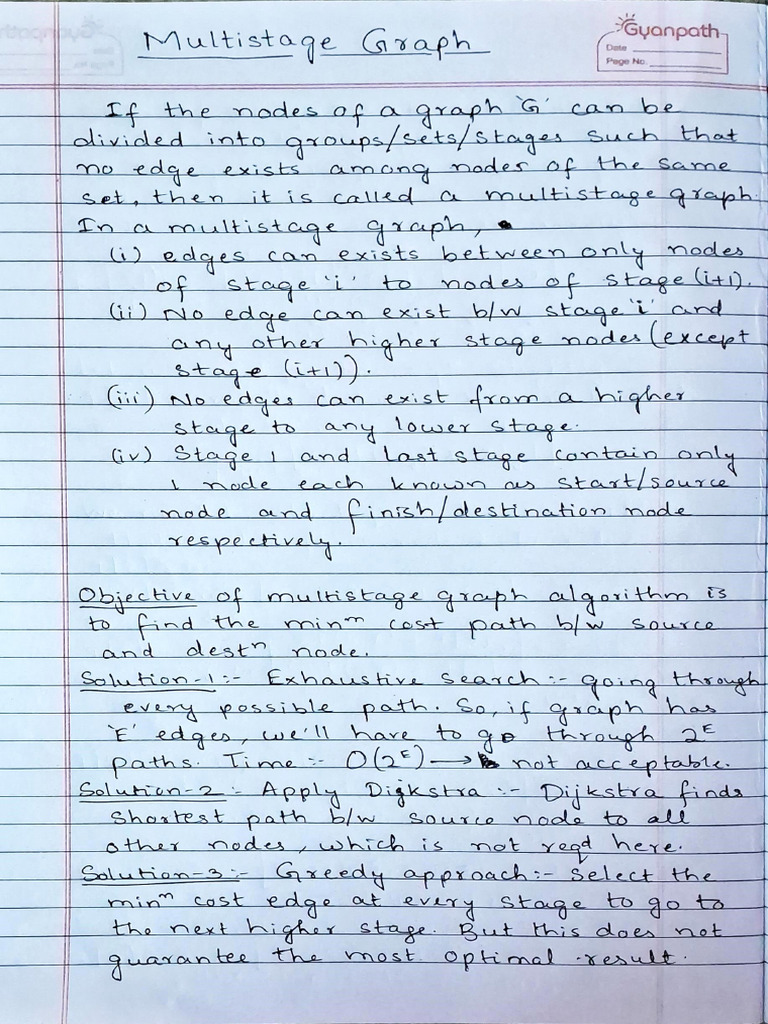 Multistage Graph
Gyanpath
Date
Page No.
If the nodes of a graph 'G' can be
divided into groups/sets/stages such that
no edge exists among nodes of the same
set, then it is called a multistage graph.
In a multistage graph,
(i) edges can exists between only nodes
of stage 'i' to nodes of stage (i+1).
(ii) No edge can exist b/w stage 'i' and
any other higher stage nodes (except
stage (i+1)).
(iii) No edges can exist from a higher
stage to any lower stage.
(iv) Stage 1 and last stage contain only
1 node each known as start/source
node and finish/destination node
respectively.
Objective of multistage graph algorithm is
to find the minᵐ cost path b/w source
and destⁿ node.
Solution-1:- Exhaustive search:- going through
every possible path. So, if graph has
'E' edges, we'll have to go through 2ᴱ
paths. Time:- O(2ᴱ) → not acceptable.
Solution-2:- Apply Dijkstra:- Dijkstra finds
shortest path b/w source node to all
other nodes, which is not reqd here.
Solution-3:- Greedy approach:- Select the
minᵐ cost edge at every stage to go to
the next higher stage. But this does not
guarantee the most optimal result.